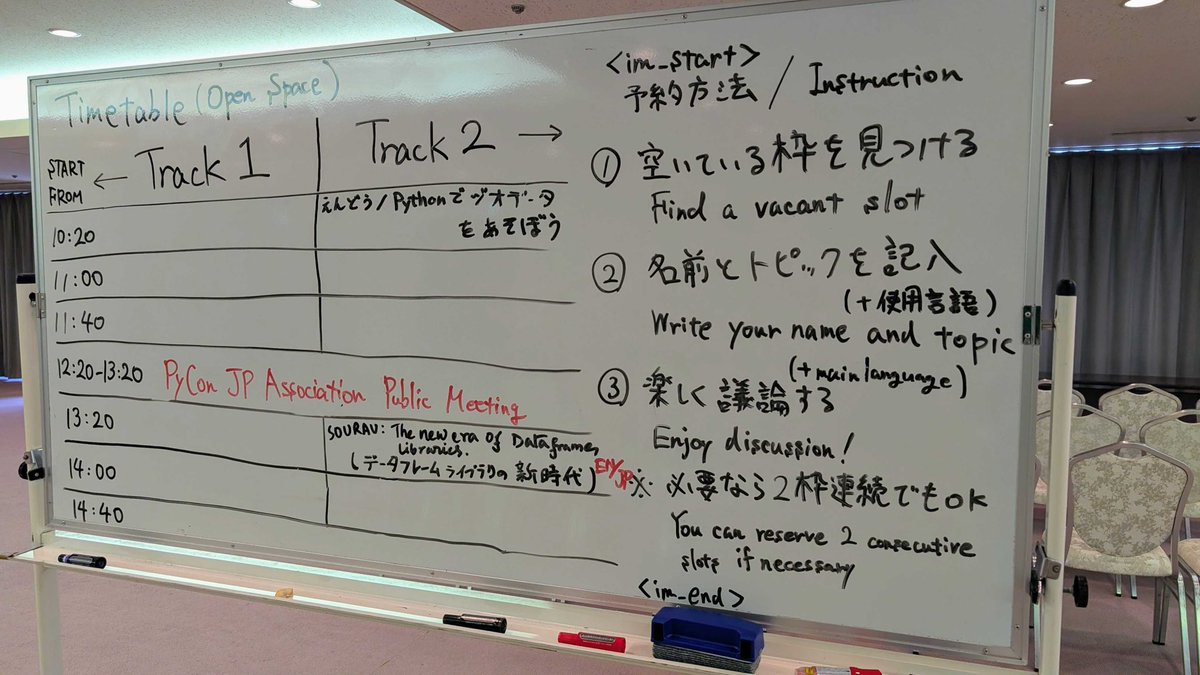 Timetable (Open Space)
START FROM
← Track 1
Track 2 →
10:20
えんどう/Pythonでジオデータ
をあそぼう
11:00
11:40
12:20-13:20 PyCon JP Association Public Meeting
13:20
SOURAV: The new era of Dataframe
Libraries.
(データフレームライブラリの新時代) EN/JP
14:00
14:40
<im_start>
予約方法 / Instruction
① 空いている枠を見つける
Find a vacant slot
② 名前とトピックを記入
(+使用言語)
Write your name and topic
(+main language)
③ 楽しく議論する
Enjoy discussion!
※ 必要なら2枠連続でもOK
You can reserve 2 consecutive
slots if necessary
<im_end>